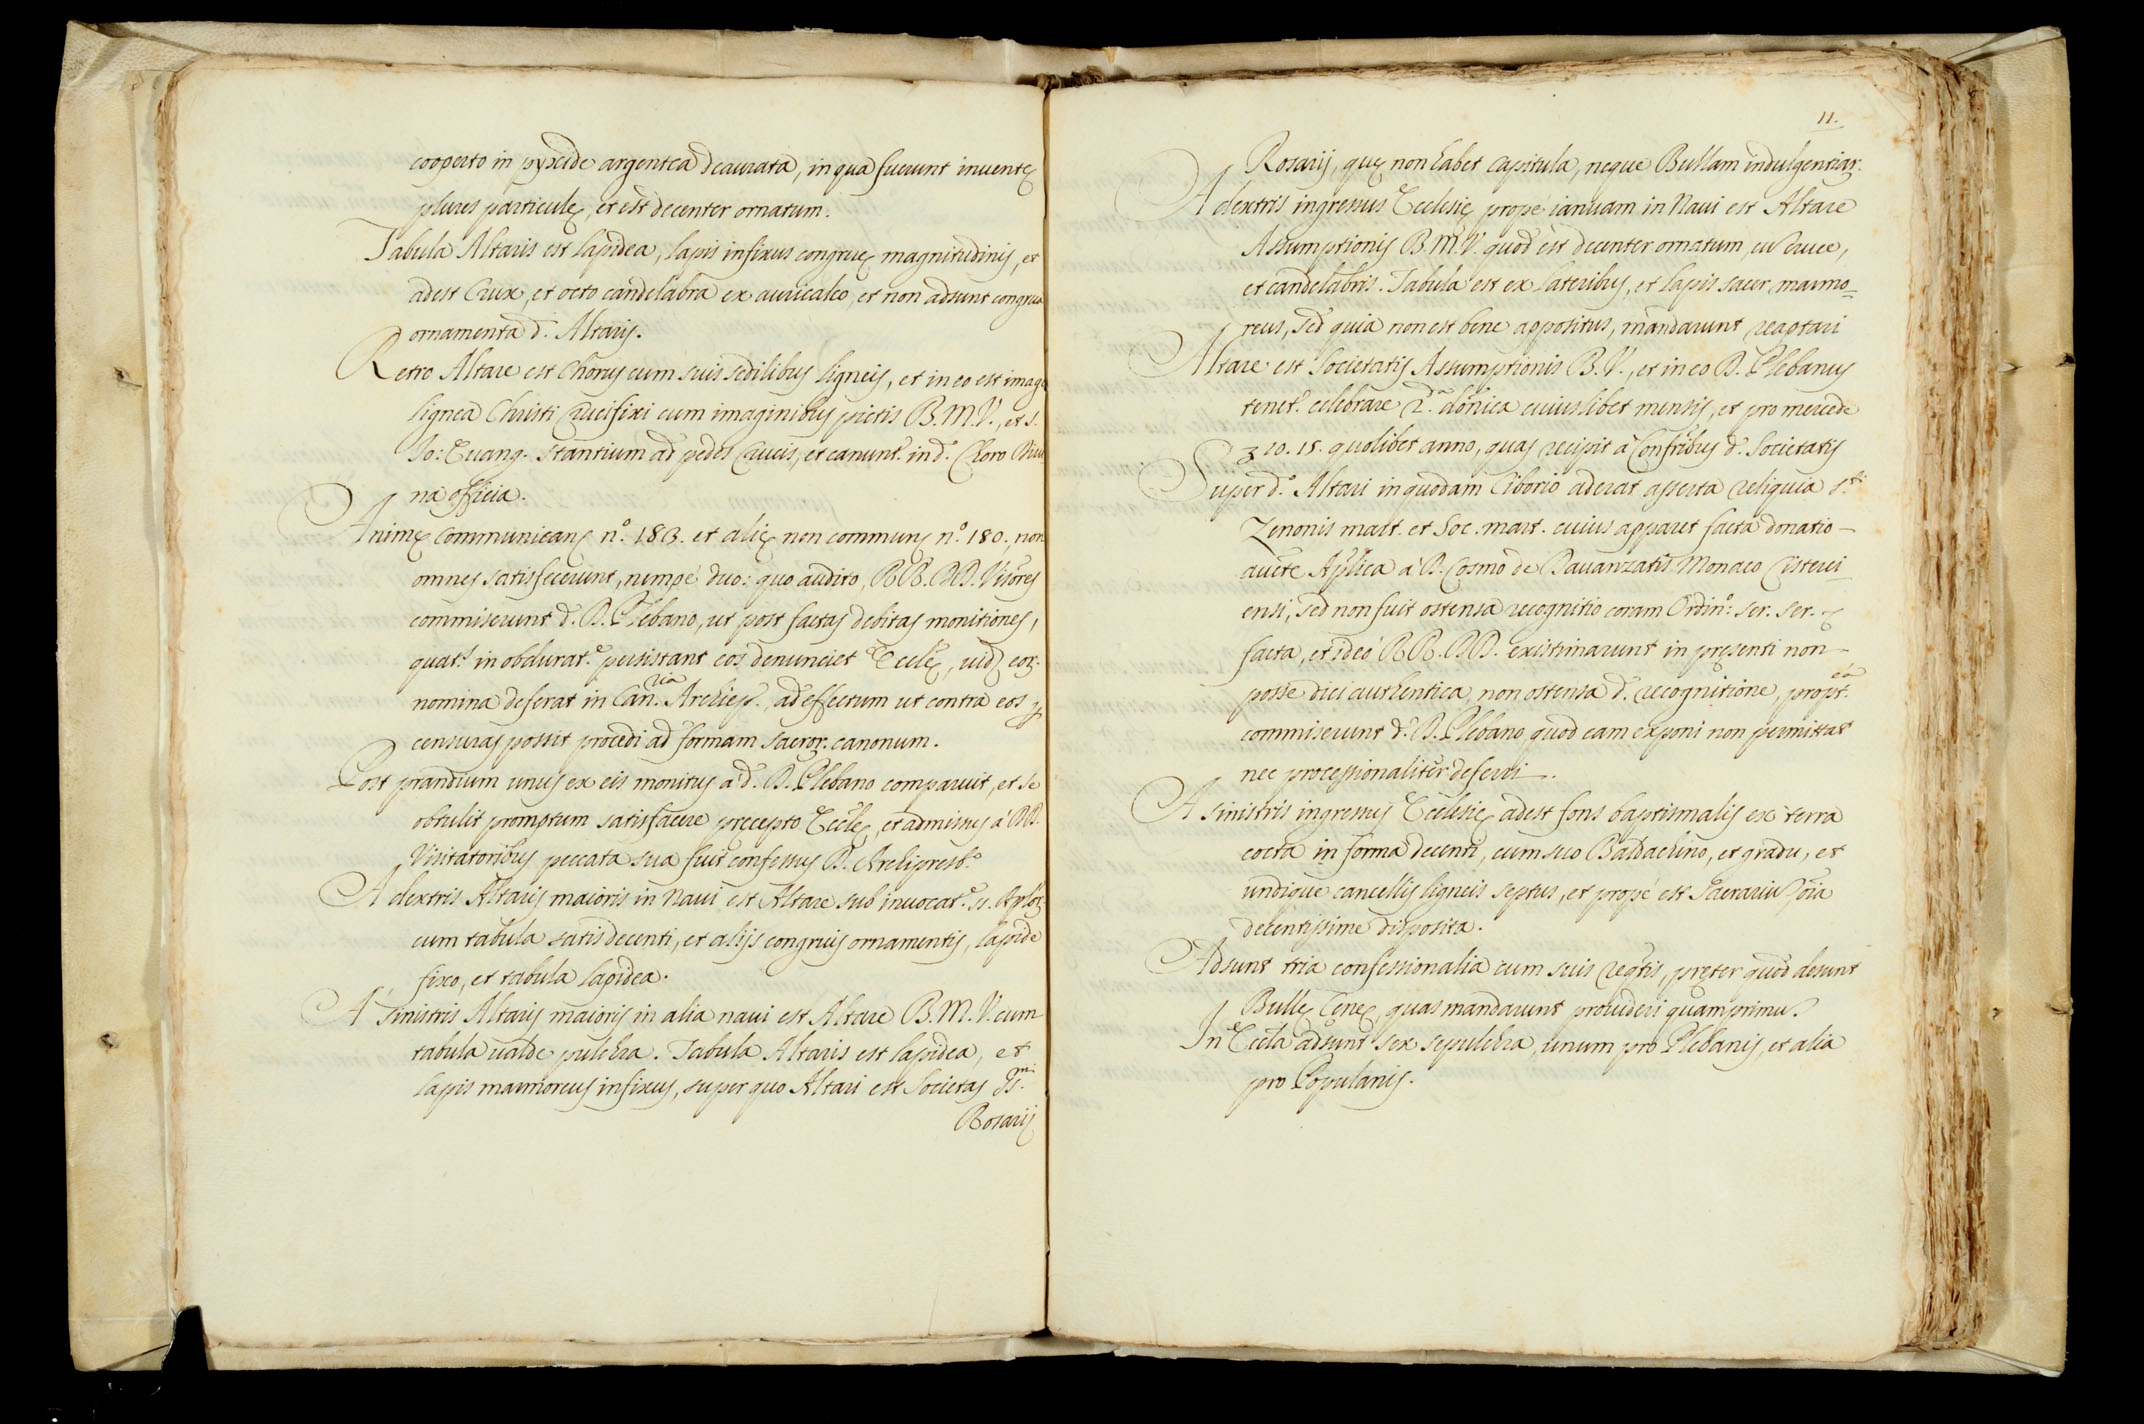 cooperto in pyxide argentea deaurata, in qua fuerunt inventę
plures particulę, et est decenter ornatum.
Tabula Altaris est lapidea, lapis infixus congruę magnitudinis, et
adest Crux, et octo candelabra ex auricalco, et non adsunt congrua
ornamenta d. Altaris.
Retro Altare est Chorus cum suis sedilibus ligneis, et in eo est imago
lignea Christi Crucifixi cum imaginibus pictis B. M. V., et S.
Jo: Euang. stantium ad pedes Crucis, et canunt. in d.º Choro Divi
na officia.
Animę communicanę n.º 183. et alię non commune n.º 180., non
omnes satisfecerunt, nempè duo: quo audito, RR. DD. Visores
commiserunt d. D. Plebano, ut post factas debitas monitiones,
quat.s in obdurat.e persistant eos denunciet Ecclę,
nomina deferat in Can.ria Archiep. ad effectum ut contra eos p
censuras possit procedi ad formam sacror. canonum.
Post prandium unus ex eis monitus à d. D. Plebano comparuit, et se
obtulit promptum satisfacere precepto Ecclę, et admissus à DD.
Visitatoribus peccata sua fuit confessus D. Archipresb.º
A dextris Altaris maioris in Naui est Altare sub inuocat.e ss. Aplor.
cum tabula satis decenti, et alijs congruis ornamentis, lapide
fixo, et tabula lapidea.
A sinistris Altaris maioris in alia naui est Altare B. M. V. cum
tabula ualde pulchra. Tabula Altaris est lapidea, et
lapis marmoreus infixus, super quo Altari est Societas SS.mi
Rosarij
11.
Rosarij, quę non habet capitula, neque Bullam indulgentiar.
A dextris ingressus Ecclesię prope ianuam in Naui est Altare
Assumptionis B. M. V. quod est decenter ornatum, cu cruce,
et candelabris. Tabula est ex lateribus, et lapis sacer marmo=
reus, sed quia non est bene appositus, mandarunt reaptari
Altare est Societatis Assumptionis B. V., et in eo D. Plebanus
tenet.r celebrare 2.a dönica cuiuslibet mensis, et pro mercede
10. 15. quolibet anno, quas recipit à Confribus d. Societatis
Super d.º Altari in quodam Ciborio aderat asserta reliquia S.ti
Zenonis mart. et Soc. mart. cuius apparet facta donatio
aucte Aplica à D. Cosmo de Bauanzatis Monaco Cisterci
ensi, sed non fuit ostensa recognitio coram Ordin.º ser. ser.
facta, et ideo RR. DD. existimarunt in pręsenti non
posse dici authentica, non ostensa d. recognitione, propt.eà
commiserunt d. D. Plebano quod eam exponi non permittat
nec processionaliter deferri.
A sinistris ingressus Ecclesię adest fons baptismalis ex terra
cocta in forma decenti, cum suo Baldachino, et gradu, et
undique cancellis ligneis septus, et propè est Sacrariu oia
decentissime disposita.
Adsunt tria confessionalia cum suis reqtis, pręter quod desunt
Bullę Cenę, quas mandarunt prouideri quamprimu.
In Eccla adsunt sex sepulchra, unum pro Plebanis, et alia
pro Popularis.